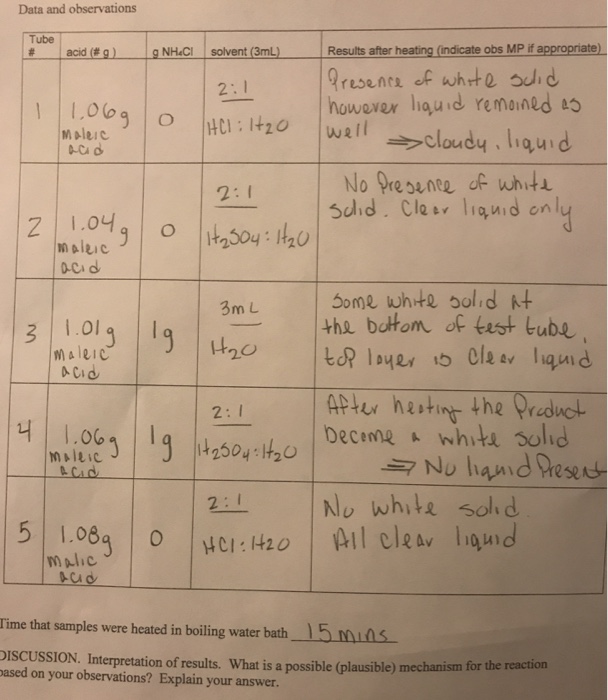 Data and observations
Tube
# acid (# g) g NH4Cl solvent (3mL) Results after heating (indicate obs MP if appropriate)
1 1.06g maleic acid 0 2:1 HCl : H2O Presence of white solid
however liquid remained as
well ⇒ cloudy, liquid
2 1.04g maleic acid 0 2:1 H2SO4 : H2O No Presence of white
solid. Clear liquid only
3 1.01g maleic acid 1g 3mL H2O Some white solid at
the bottom of test tube,
top layer is clear liquid
4 1.06g maleic acid 1g 2:1 H2SO4 : H2O After heating the Product
become a white solid
⇒ No liquid Present
5 1.08g malic acid 0 2:1 HCl : H2O No white solid.
All clear liquid
Time that samples were heated in boiling water bath 15 mins
DISCUSSION. Interpretation of results. What is a possible (plausible) mechanism for the reaction
based on your observations? Explain your answer.